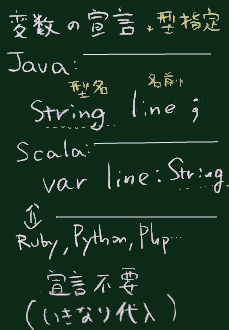 変数の宣言、型指定
Java:
型名 名前
String line ;
Scala:
var line : String
⇕
Ruby, Python, Php…
宣言不要
(いきなり代入)